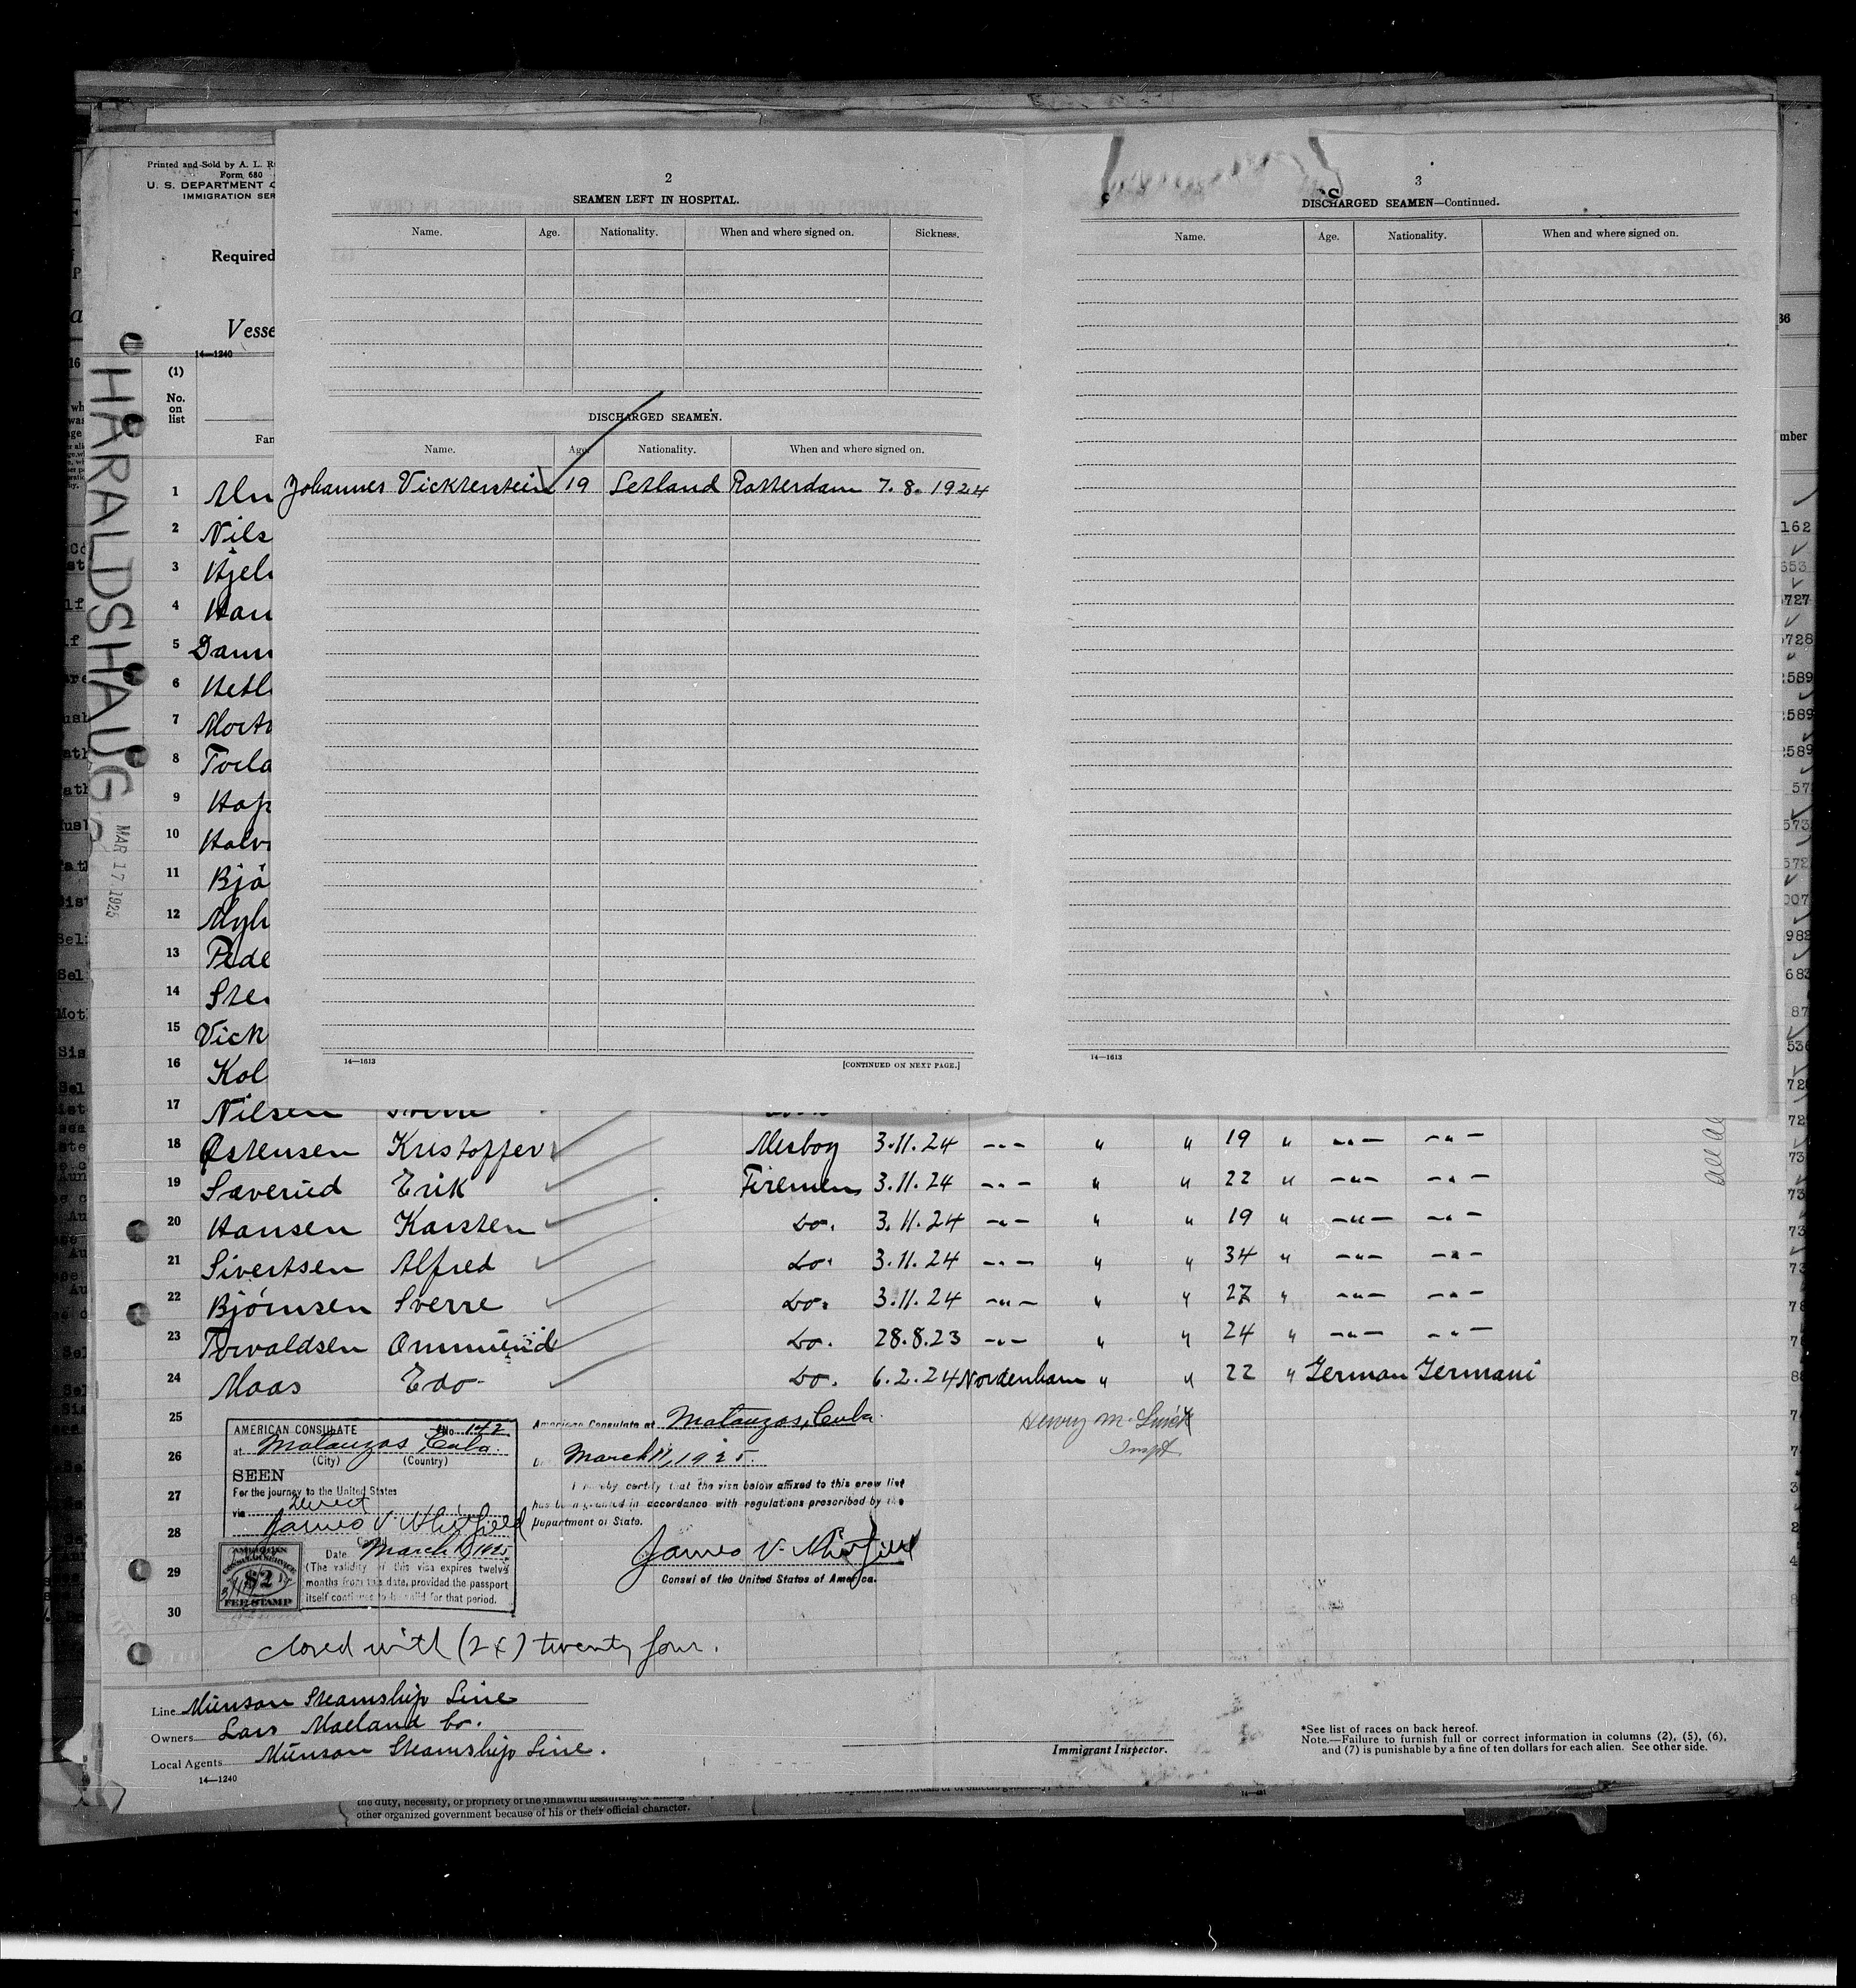 Printed and Sold by A. L. R
Form 680
U. S. DEPARTMENT
IMMIGRATION SER
Required
Vesse
14—1240
(1)
No.
on
list
Fan
HARALDSHAUG
MAR 17 1925
2
SEAMEN LEFT IN HOSPITAL.
Name. Age. Nationality. When and where signed on. Sickness.
DISCHARGED SEAMEN.
Name. Age. Nationality. When and where signed on.
Johannes Vickterstein 19 Letland Rotterdam 7.8.1924
14—1613
[CONTINUED ON NEXT PAGE.]
3
DISCHARGED SEAMEN—Continued.
Name. Age. Nationality. When and where signed on.
14—1613
1
2 Nils
3 Hjel
4 Han
5 Dann
6 Hetl
7 Mort
8 Torla
9 Hop
10 Halv
11 Bjö
12 Myh
13 Pede
14 Ste
15 Vick
16 Kol
17 Nilsen Sverre
18 Østensen Kristoffer Messboy 3.11.24 –"– " " 19 " –"– –"–
19 Sæverud Erik Firemen 3.11.24 –"– " " 22 " –"– –"–
20 Hansen Karsten Do. 3.11.24 –"– " " 19 " –"– –"–
21 Sivertsen Alfred Do. 3.11.24 –"– " " 34 " –"– –"–
22 Bjørnsen Sverre Do. 3.11.24 –"– " " 27 " –"– –"–
23 Torvaldsen Ommund Do. 28.8.23 –"– " " 24 " –"– –"–
24 Maas Edo Do. 6.2.24 Nordenham " " 22 " German Germani
25
26
27
28
29
30
AMERICAN CONSULATE No. 142
at Matanzas, Cuba.
(City) (Country)
SEEN
For the journey to the United States
via Direct
James V. Whitfield
Date March 11, 1925
(The validity of this visa expires twelve
months from this date, provided the passport
itself continues to be valid for that period.
AMERICAN
CONSULAR SERVICE
$2
FEE STAMP
American Consulate at Matanzas, Cuba.
March 11, 1925.
I hereby certify that the visa below affixed to this crew list
has been granted in accordance with regulations prescribed by the
Department of State.
James V. Whitfield
Consul of the United States of America.
Henry M. Smith
Inspt.
closed with (24) twenty four.
Line Munson Steamship Line
Owners Lars Maeland Co.
Local Agents Munson Steamship Line.
14—1240
Immigrant Inspector.
*See list of races on back hereof.
Note.—Failure to furnish full or correct information in columns (2), (5), (6),
and (7) is punishable by a fine of ten dollars for each alien. See other side.
the duty, necessity, or propriety of the unlawful assaulting or
other organized government because of his or their official character.